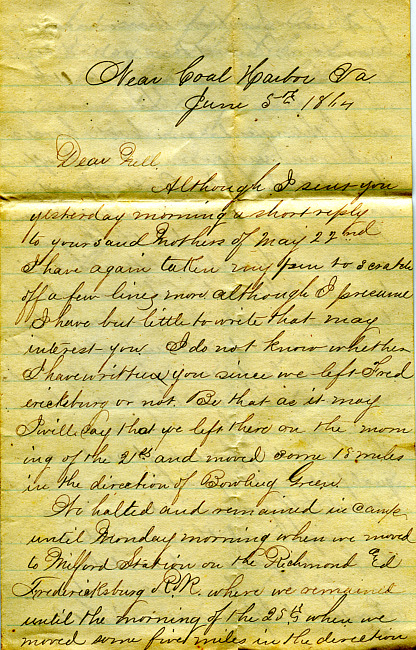 Near Coal Harbor Va.
June 5th 1864
Dear Nell
Although I sent you
yesterday morning a short reply
to yours and Mothers of May 22nd
I have again taken my pen to scratch
off a few lines more although I presume
I have but little to write that may
interest you I do not know whether
I have written you since we left Fred
ericksburg or not. Be that as it may
I will say that we left there on the morn
ing of the 21st and moved some 18 miles
in the direction of Bowling Green.
We halted and remained in camp
until Monday morning when we moved
to Milford Station on the Richmond &
Fredericksburg R.R. where we remained
until the morning of the 25th when we
moved some five miles in the direction